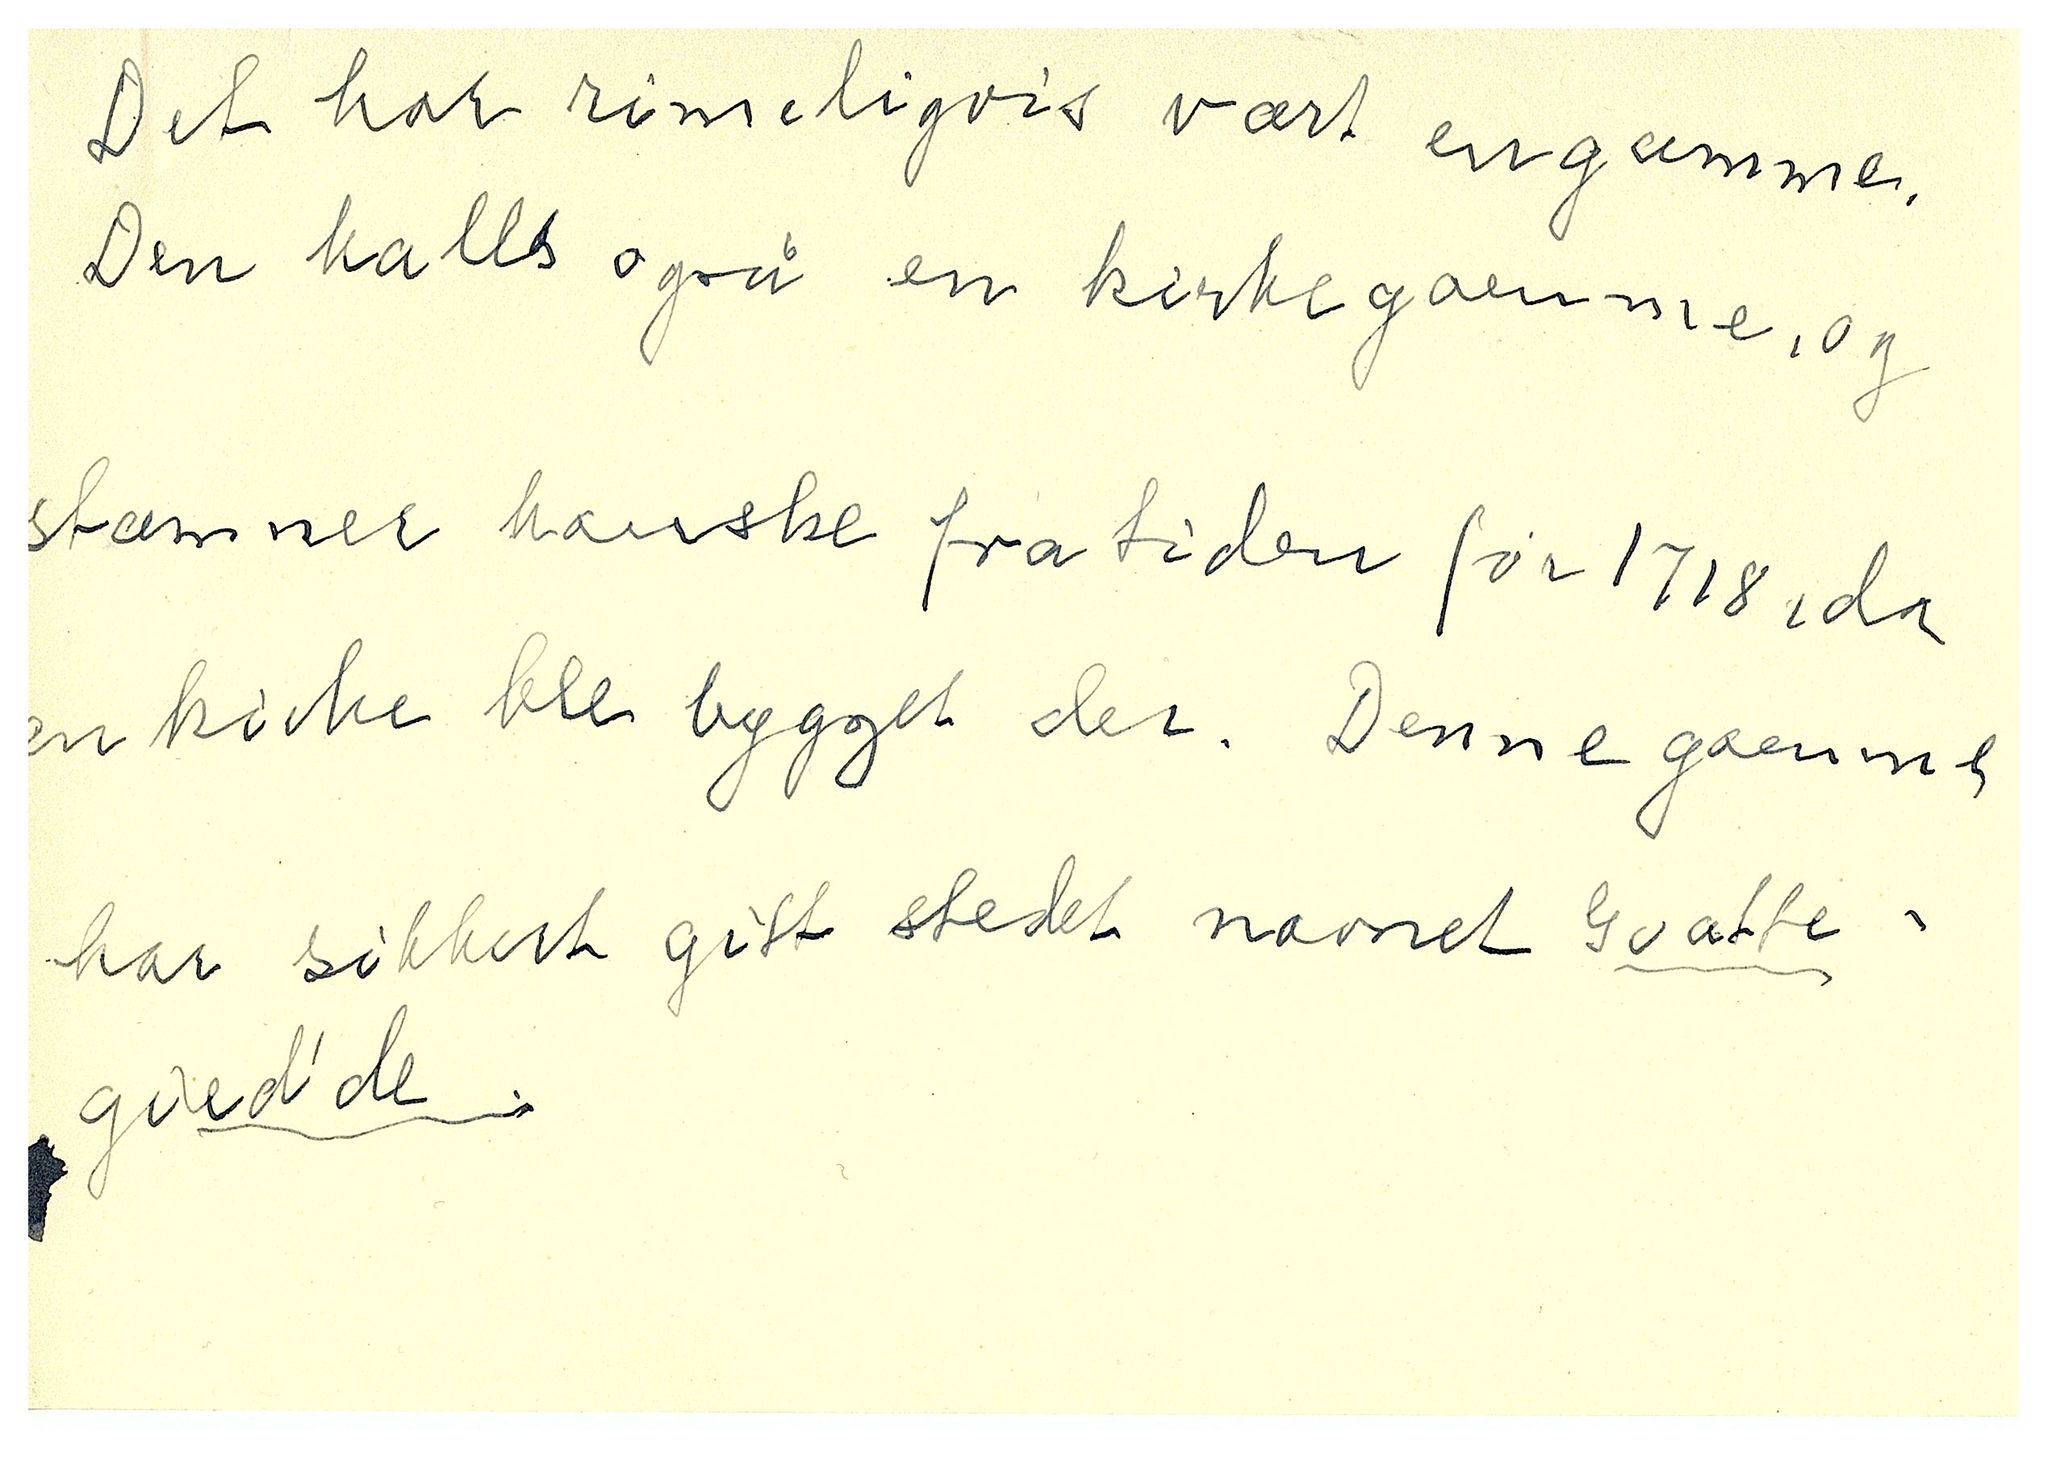 Det har rimeligvis vært en gamme.
Den kalles også en kirkegamme, og
stammer kanske fra tiden før 1718, da
en kirke ble bygget der. Denne gamme
har sikkert gitt stedet navnet Goatte-
gied'de.